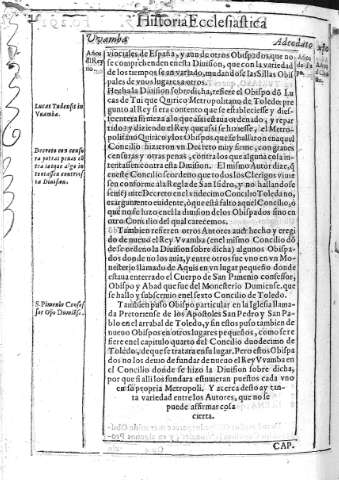 Historia Ecclesiastica
Vvamba
Adeodato
Años
d'l Rey
no
Año
uinciales de España, y aun de otros Obispados que no
se comprehenden en esta Diuision, que con la variedad
de los tiempos se an variado, mudandose las Sillas Obis
pales de vnos lugares a otros.
Hecha la Diuision sobredicha, refiere el Obispo dõ Lu
cas de Tui que Quirico Metropolitano de Toledo pre
gunto al Rey si era contento que se estableciesse y dies-
se entera firmeza a lo que assi estaua ordenado, y repar
tido y diziendo el Rey, que assi se hiziesse, el Metro-
politano Quirico y los Obispos, que se hallaron en aquel
Concilio hizieron vn Decreto muy firme, con graues
censuras y otras penas, contra los que alguna cosa in-
tentassen contra esta Diuision. El mismo Autor dize, q̃
en este Concilio se ordeno que todos los Clerigos viuies
sen conforme a la Regla de San Isidro, y no hallandose
semejante Decreto en el vndecimo Concilio Toledano,
es argumento euidente, ò que està falto aquel Concilio, ò
que no se hizo en el la diuision de los Obispados sino en
otro Concilio del qual carecemos.
Tambien refieren otros Autores auer hecho y eregi
do de nueuo el Rey Vvamba (en el mismo Concilio dõ
de se ordeno la Diuision sobre dicha) algunos Obispa-
dos donde no los auia, y entre otros fue vno en vn Mo
nesterio llamado de Aquis en vn lugar pequeño donde
estaua enterrado el Cuerpo de San Pimenio confessor,
Obispo y Abad que fue del Monesterio Dumiense, que
se hallo y subscriuio en el sexto Concilio de Toledo.
Tambien puso Obispo particular en la Iglesia llama-
da Pretoriense de los Apostoles San Pedro y San Pa-
blo en el arrabal de Toledo, y sin estos puso tambien de
nueuo Obispos en otros lugares pequeños, como se re
fiere en el capitulo quarto del Concilio duodecimo de
Toledo, de que se tratara en su lugar. Pero estos Obispa
dos no los deuio de fundar de nueuo el Rey Vvamba en
el Concilio donde se hizo la Diuision sobre dicha,
por que si alli los fundara estuuieran puestos cada vno
en su propria Metropoli. Y acerca desto ay tan-
ta variedad entre los Autores, que no se
puede affirmar cosa
cierta.
CAP.
Lucas Tudensis in
Vuamba.
Decreto con censu
ra y otras penas cõ
tra los que algo in
tentassen contra es
ta Diuision.
S. Pimenio Confes
sor Obpo Dumiẽse.